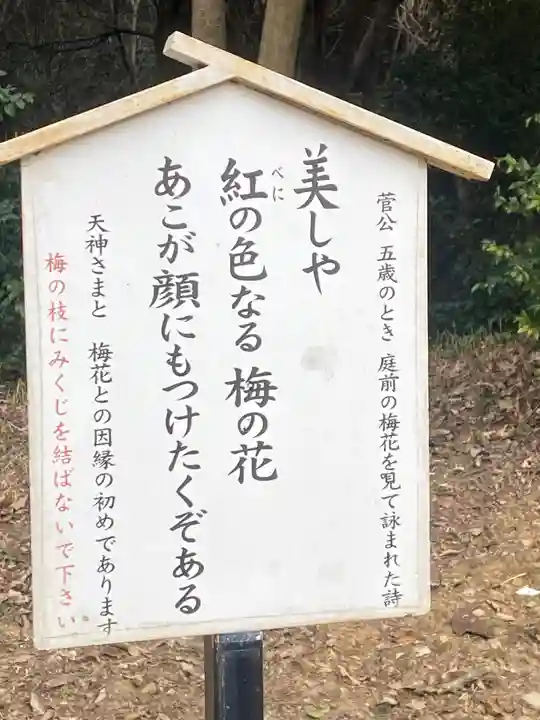 菅公 五歳のとき 庭前の梅花を見て詠まれた詩
美しや
紅の色なる 梅の花
べに
あこが顔にもつけたくぞある
天神さまと 梅花との因縁の初めであります
梅の枝にみくじを結ばないで下さい。